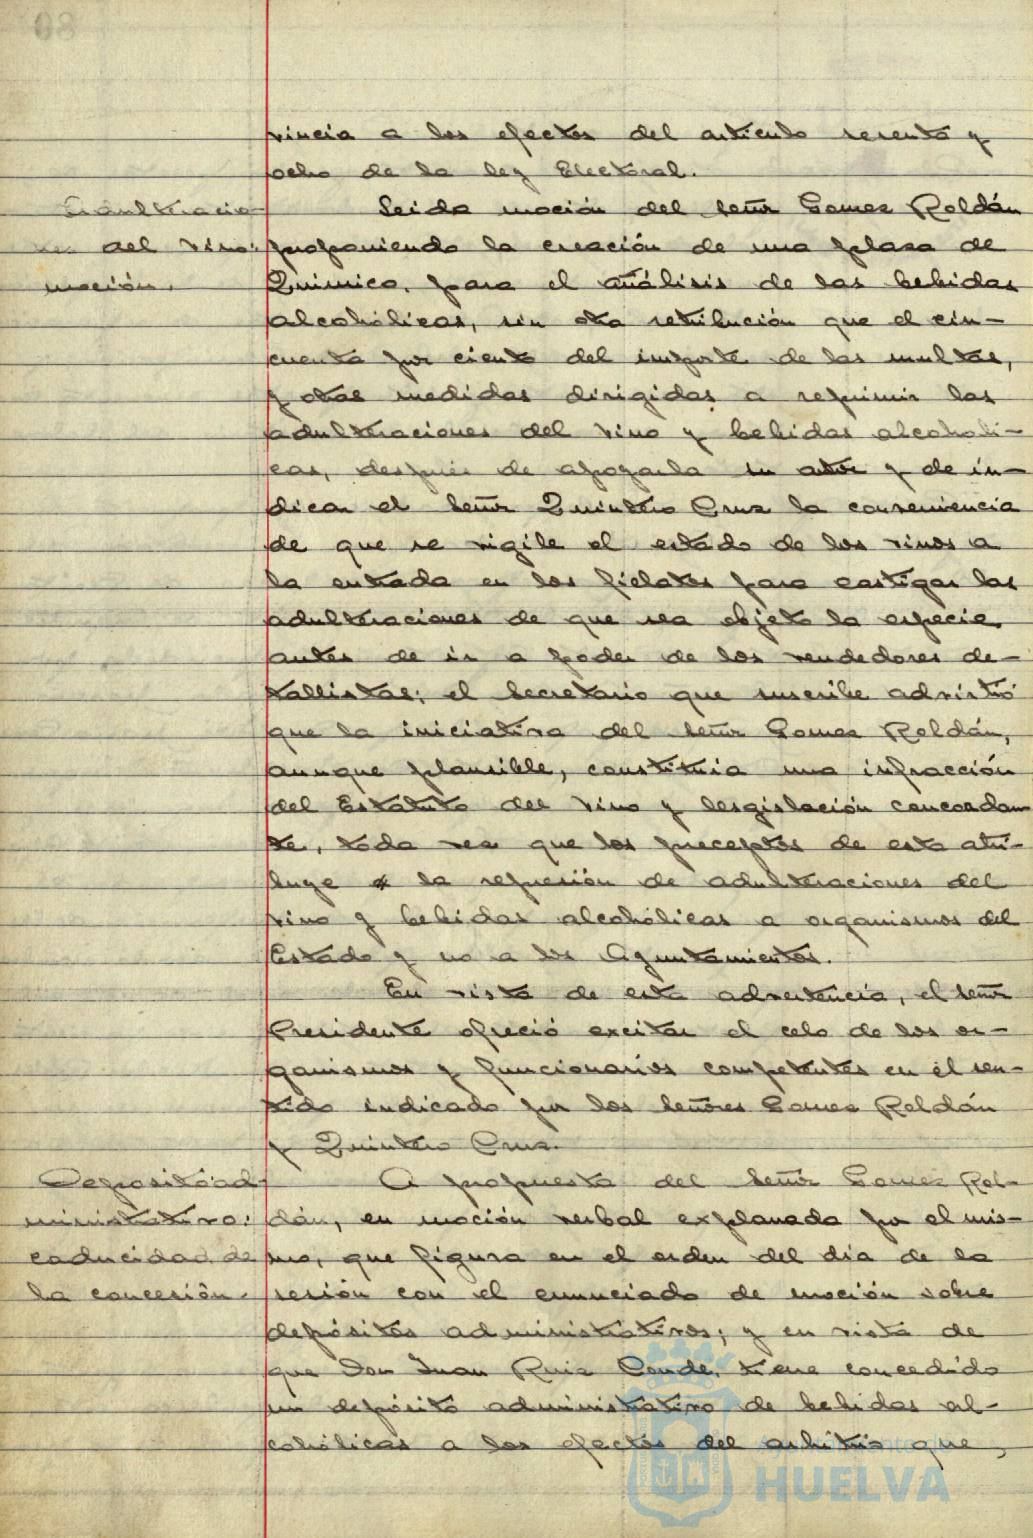 vincia a los efectos del artículo sesenta y
ocho de la ley Electoral.
Adulteracio-
nes del vino:
moción.
Leida moción del señor Gomez Roldán
proponiendo la creación de una plaza de
Químico, para el análisis de las bebidas
alcohólicas, sin otra retribución que el cin-
cuenta por ciento del importe de las multas,
y otras medidas dirigidas a reprimir las
adulteraciones del vino y bebidas alcoholi-
cas, después de apoyarla su autor y de in-
dicar el señor Quintero Cruz la conveniencia
de que se vigile el estado de los vinos a
la entrada en los fielatos para castigar las
adulteraciones de que sea objeto la especie
antes de ir a poder de los vendedores de-
tallistas; el Secretario que suscribe advirtió
que la iniciativa del señor Gomez Roldán,
aunque plausible, constituia una infracción
del Estatuto del Vino y lesgislación concordan
te, toda vez que los preceptos de esta atri-
buye a la represión de adulteraciones del
vino y bebidas alcohólicas a organismos del
Estado y no a los Ayuntamientos.
En vista de esta advertencia, el señor
Presidente ofreció excitar el celo de los or-
ganismos y funcionarios competentes en el sen-
tido indicado por los señores Gomez Roldán
y Quintero Cruz.
Deposito ad-
ministrativo:
caducidad de
la concesión.
A propuesta del señor Gomez Rol-
dán, en moción verbal explanada por el mis-
mo, que figura en el orden del dia de la
sesión con el enunciado de moción sobre
depósitos administrativos; y en vista de
que Don Juan Ruiz Conde, tiene concedido
un depósito administrativo de bebidas al-
cohólicas a los efectos del arbitrio que,
Ayuntamiento de
HUELVA